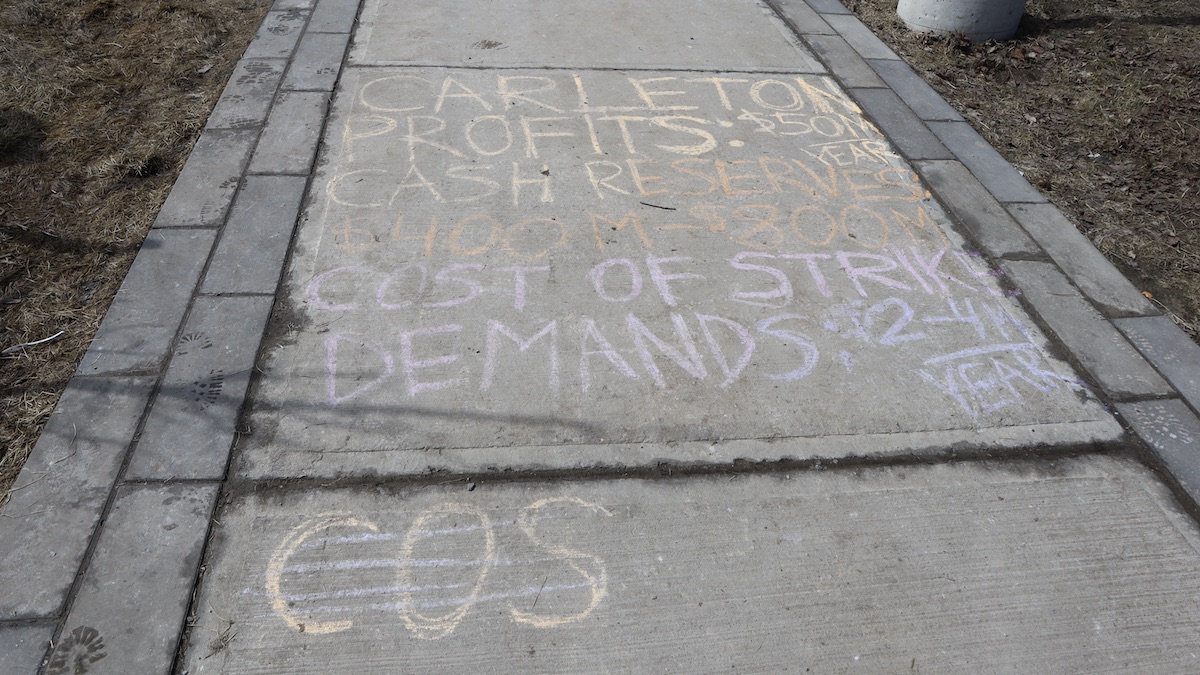 CARLETON
PROFITS: $50M
YEAR
CASH RESERVES:
£400M-$800M
COST OF STRIKE
DEMANDS: $2-4M
YEAR
COS